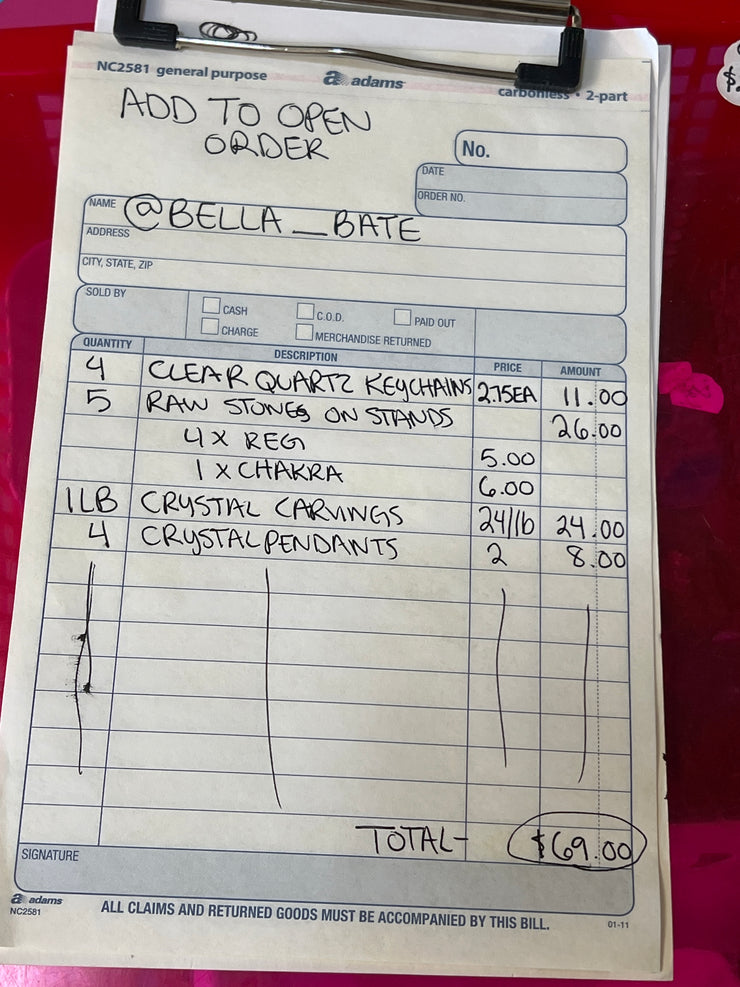 NC2581 general purpose
a adams
carbonless • 2-part
ADD TO OPEN
ORDER
No.
DATE
ORDER NO.
NAME @BELLA_BATE
ADDRESS
CITY, STATE, ZIP
SOLD BY
CASH
C.O.D.
PAID OUT
CHARGE
MERCHANDISE RETURNED
QUANTITY DESCRIPTION PRICE AMOUNT
4 CLEAR QUARTZ KEYCHAINS 2.75EA 11.00
5 RAW STONES ON STANDS 26.00
4 X REG 5.00
1 X CHAKRA 6.00
1LB CRYSTAL CARVINGS 24/lb 24.00
4 CRYSTAL PENDANTS 2 8.00
TOTAL- $69.00
SIGNATURE
a adams
NC2581
ALL CLAIMS AND RETURNED GOODS MUST BE ACCOMPANIED BY THIS BILL.
01-11